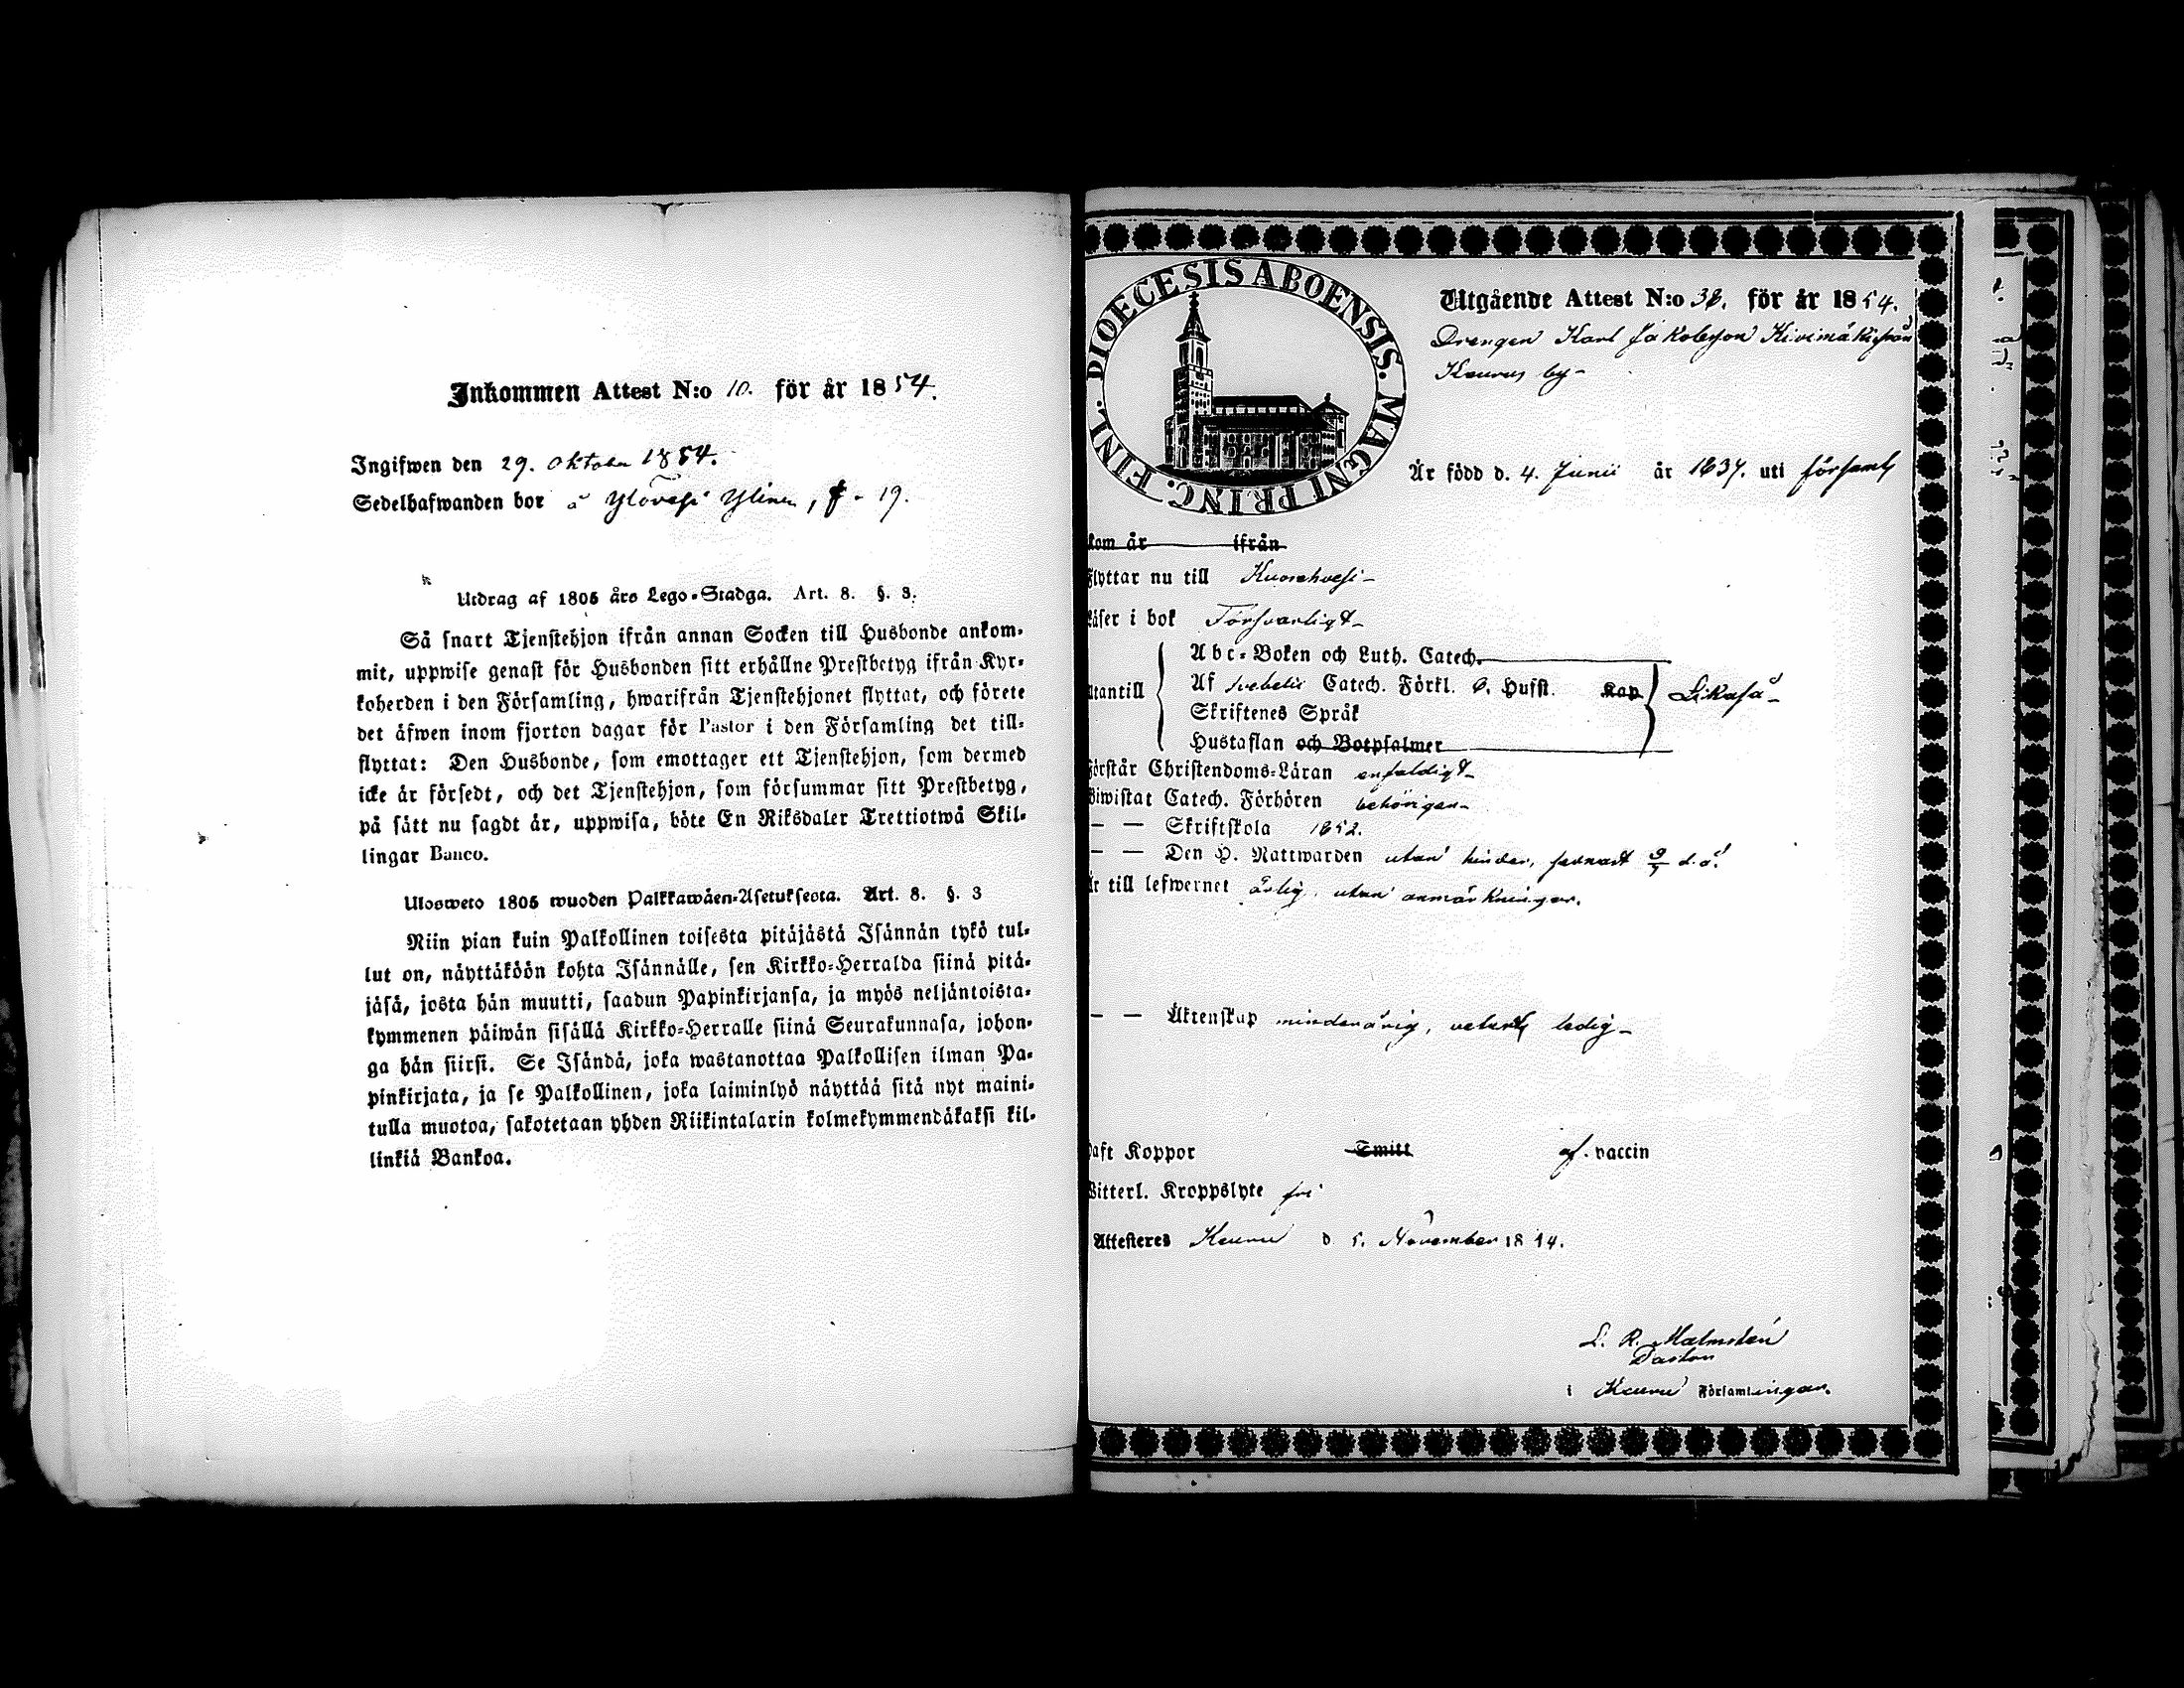 Inkommen Attest N:o 10. för år 1854.
Ingifwen den 29. Oktober 1854.
Sedelhafwanden bor å Ylövesi Ylinen, f. 19.
Utdrag af 1805 års Lego-Stadga. Art. 8. §. 3.
Så snart Tjenstehjon ifrån annan Socken till Husbonde ankom-
mit, uppwise genast för Husbonden sitt erhållne Prestbetyg ifrån Kyr-
koherden i den Församling, hwarifrån Tjenstehjonet flyttat, och förete
det äfwen inom fjorton dagar för Pastor i den Församling det till-
flyttat: Den Husbonde, som emottager ett Tjenstehjon, som dermed
icke är försedt, och det Tjenstehjon, som försummar sitt Prestbetyg,
på sätt nu sagdt är, uppwisa, böte En Riksdaler Trettiotwå Skil-
lingar Banco.
Ulosweto 1805 wuoden Palkkawäen-Asetuksesta. Art. 8. §. 3
Niin pian kuin Palkollinen toisesta pitäjästä Isännän tykö tul-
lut on, näyttäköön kohta Isännälle, sen Kirkko-Herralda siinä pitä-
jäsä, josta hän muutti, saadun Papinkirjansa, ja myös neljäntoista-
kymmenen päiwän sisällä Kirkko-Herralle siinä Seurakunnasa, johon-
ga hän siirsi. Se Isändä, joka wastanottaa Palkollisen ilman Pa-
pinkirjata, ja se Palkollinen, joka laiminlyö näyttää sitä nyt maini-
tulla muotoa, sakotetaan yhden Riikintalarin kolmekymmendäkaksi kil-
linkiä Bankoa.
DIOECESIS ABOENSIS. MAGNI PRINC. FINL.
Utgående Attest N:o 38. för år 1854.
Drengen Karl Jakobsson Kivimäki från
Keuru by-
Är född d. 4. Junii år 1837. uti förs̄aml
kom år ifrån
Flyttar nu till Kuorehvesi-
Läser i bok Försvarligt-
Abc-Boken och Luth. Catech.
Utantill Af Svebelii Catech. Förkl. 6. Husst. Kap Likaså-
Skriftenes Språk
Hustaflan och Botpsalmer
Förstår Christendoms-Läran enfaldigt-
Biwistat Catech. Förhören behörigen-
— — Skriftskola 1852.
— — Den H. Nattwarden utan hinder, senast 9/7 d.å.
Är till lefwernet ärlig, utan anmärkningar.
— — Äktenskap minderårig, ledig-
haft Koppor Smitt af. vaccin
Witterl. Kroppslyte fri
Attesteres Keuru d 5. November 1854.
L. R. Malmstén
Pastor
i Keuru Församlingar.